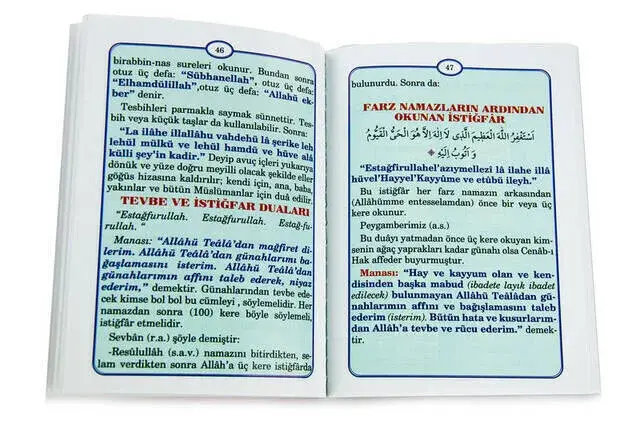 46
birabbin-nas sureleri okunur. Bundan sonra
otuz üç defa: "Sübhanellah", otuz üç defa:
"Elhamdülillah", otuz üç defa: "Allahü ek-
ber" denir.
Tesbihleri parmakla saymak sünnettir. Tes-
bih veya küçük taşlar da kullanılabilir. Sonra:
"La ilâhe illallâhu vahdehü lâ şerike leh
lehül mülkü ve lehül hamdü ve hüve alâ
külli şey'in kadir." Deyip avuç içleri yukarıya
dönük ve yüze doğru meyilli olacak şekilde eller
göğüs hizasına kaldırılır; kendi için, ana, baba,
yakınlar ve bütün Müslümanlar için duâ edilir.
TEVBE VE İSTİĞFAR DUALARI
"Estağfurullah. Estağfurullah. Estağ-fu-
rullah. "
Manası: "Allâhü Teâlâ'dan mağfiret di-
lerim. Allâhü Teâlâ'dan günahlarımı ba-
ğaşlamasını isterim. Allâhü Teâlâ'dan
günahlarımın affını taleb ederek, niyaz
ederim," demektir. Günahlarından tevbe ede-
cek kimse bol bol bu cümleyi , söylemelidir. Her
namazdan sonra (100) kere böyle söylemeli,
istiğfar etmelidir.
Sevbân (r.a.) şöyle demiştir:
-Resûlullâh (s.a.v.) namazını bitirdikten, se-
lam verdikten sonra Allâh'a üç kere istiğfârda
47
bulunurdu. Sonra da:
FARZ NAMAZLARIN ARDINDAN
OKUNAN İSTİĞFÂR
اَسْتَغْفِرُ اللّٰهَ الْعَظِيمَ الَّذِى لَا اِلٰهَ اِلَّا هُوَ الْحَىُّ الْقَيُّومُ
وَ اَتُوبُ اِلَيْهِ
"Estağfirullahel'azıymellezi lâ ilahe illâ
hüvel'Hayyel'Kayyûme ve etûbü ileyh."
Bu istiğfâr her farz namazın arkasından
(Allahümme entesselamdan) önce bir veya üç
kere okunur.
Peygamberimiz (a.s.)
Bu duâyı yatmadan önce üç kere okuyan kim-
senin ağaç yaprakları kadar günahı olsa Cenâb-ı
Hak affeder buyurmuştur.
Manası: "Hay ve kayyum olan ve ken-
disinden başka mabud (ibadete layık ibadet
edilecek) bulunmayan Allâhü Teâlâdan gü-
nahlarımın affını ve bağışlamasını taleb
ederim (isterim). Bütün hata ve kusurlarım-
dan Allâh'a tevbe ve rücu ederim." demek-
tir.